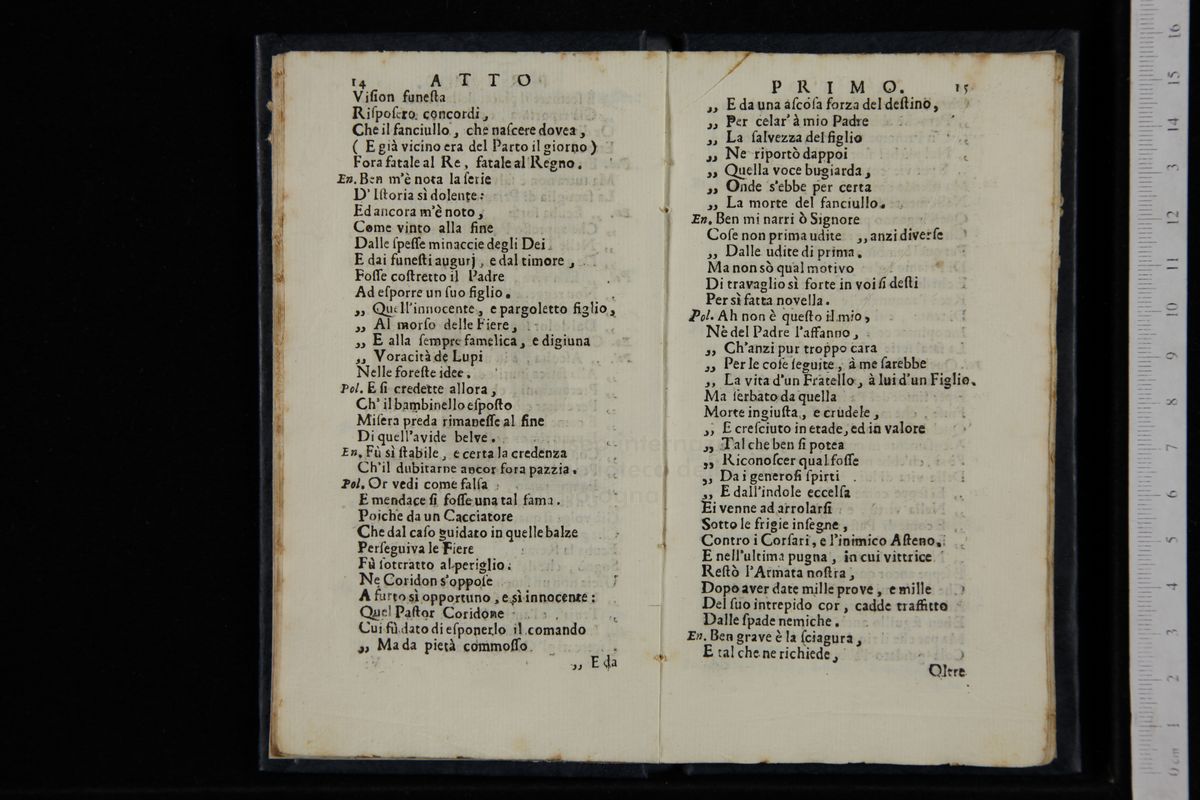 14 ATTO
Viſion funeſta
Riſpoſero concordi,
Che il fanciullo, che naſcere dovea,
( E già vicino era del Parto il giorno )
Fora fatale al Re, fatale al Regno.
En. Ben m'è nota la ſerie
D' Iſtoria sì dolente:
Ed ancora m'è noto,
Come vinto alla fine
Dalle ſpeſſe minaccie degli Dei
E dai funeſti augurj, e dal timore,
Foſſe coſtretto il Padre
Ad eſporre un ſuo figlio.
,, Quell'innocente, e pargoletto figlio,
,, Al morſo delle Fiere,
,, E alla ſempre famelica, e digiuna
,, Voracità de Lupi
Nelle foreſte idee.
Pol. E ſi credette allora,
Ch' il bambinello eſpoſto
Miſera preda rimaneſſe al fine
Di quell'avide belve.
En. Fù sì ſtabile, e certa la credenza
Ch'il dubitarne ancor fora pazzia.
Pol. Or vedi come falſa
E mendace ſi foſſe una tal fama.
Poiche da un Cacciatore
Che dal caſo guidato in quelle balze
Perſeguiva le Fiere
Fù ſottratto al periglio:
Ne Coridon s'oppoſe
A furto sì opportuno, e sì innocente:
Quel Paſtor Coridone
Cui fù dato di eſponerlo il comando
,, Ma da pietà commoſſo
,, E da
PRIMO. 15
,, E da una aſcoſa forza del deſtino,
,, Per celar' à mio Padre
,, La ſalvezza del figlio
,, Ne riportò dappoi
,, Quella voce bugiarda,
,, Onde s'ebbe per certa
,, La morte del fanciullo.
En. Ben mi narri ò Signore
Coſe non prima udite ,, anzi diverſe
,, Dalle udite di prima.
Ma non sò qual motivo
Di travaglio sì forte in voi ſi deſti
Per sì fatta novella.
Pol. Ah non è queſto il mio,
Nè del Padre l'affanno,
,, Ch'anzi pur troppo cara
,, Per le coſe ſeguite, à me ſarebbe
,, La vita d'un Fratello, à lui d'un Figlio.
Ma ſerbato da quella
Morte ingiuſta, e crudele,
,, E creſciuto in etade, ed in valore
,, Tal che ben ſi potea
,, Riconoſcer qual foſſe
,, Da i generoſi ſpirti
,, E dall'indole eccelſa
Ei venne ad arrolarſi
Sotto le frigie inſegne,
Contro i Corſari, e l'inimico Aſteno.
E nell'ultima pugna, in cui vittrice
Reſtò l'Armata noſtra,
Dopo aver date mille prove, e mille
Del ſuo intrepido cor, cadde traffitto
Dalle ſpade nemiche.
En. Ben grave è la ſciagura,
E tal che ne richiede,
Oltre